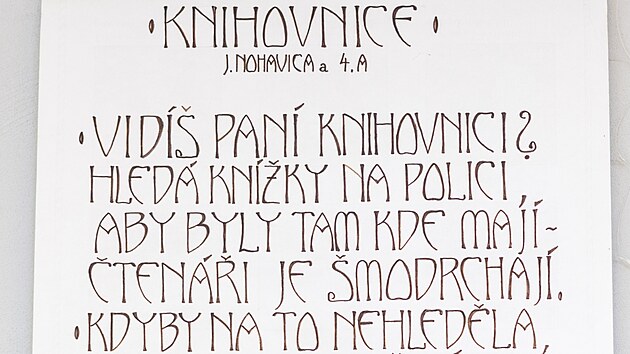 • KNIHOVNICE •
J. NOHAVICA a 4.A
• VIDÍŠ PANÍ KNIHOVNICI?
HLEDÁ KNÍŽKY NA POLICI,
ABY BYLY TAM KDE MAJÍ-
ČTENÁŘI JE ŠMODRCHAJÍ.
• KDYBY NA TO NEHLEDĚLA,